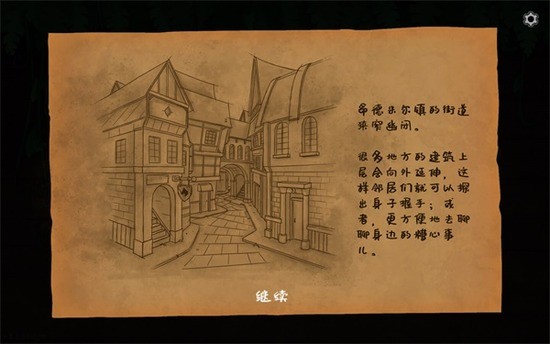 帛德日尔镇的街道
狭窄幽闭。
很多地方的建筑上
层会向外延伸，这
样邻居们就可以探
出身子握手；或
者，更方便地去聊
聊身边的糟心事
儿。
继续